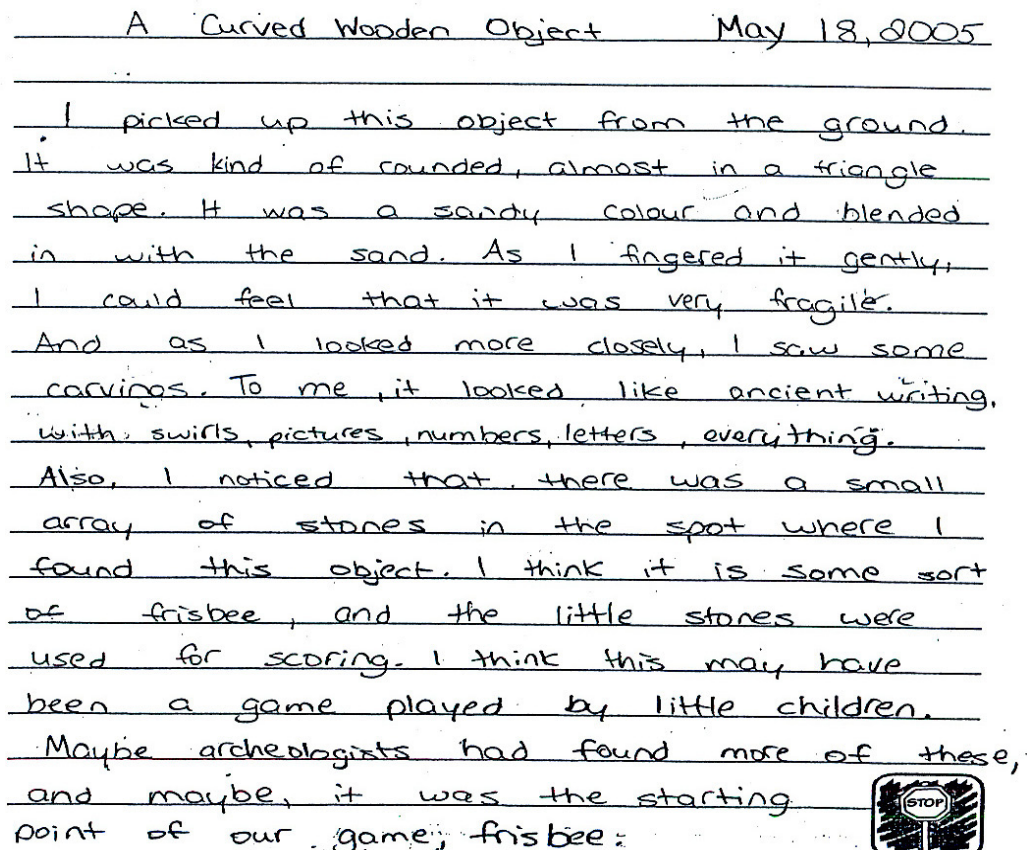 A Curved Wooden Object May 18, 2005
I picked up this object from the ground.
It was kind of rounded, almost in a triangle
shape. It was a sandy colour and blended
in with the sand. As I fingered it gently,
I could feel that it was very fragile.
And as I looked more closely, I saw some
carvings. To me, it looked like ancient writing,
with swirls, pictures, numbers, letters, everything.
Also, I noticed that there was a small
array of stones in the spot where I
found this object. I think it is some sort
of frisbee, and the little stones were
used for scoring. I think this may have
been a game played by little children.
Maybe archeologists had found more of these,
and maybe, it was the starting
point of our game, frisbee.
STOP